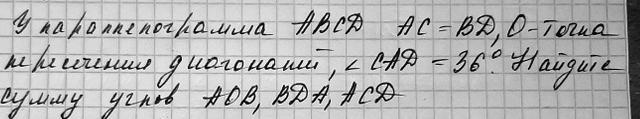 У параллелограмма ABCD AC = BD, O-точка
пересечения диагоналий, ∠ CAD = 36°. Найдите
сумму углов AOB, BDA, ACD